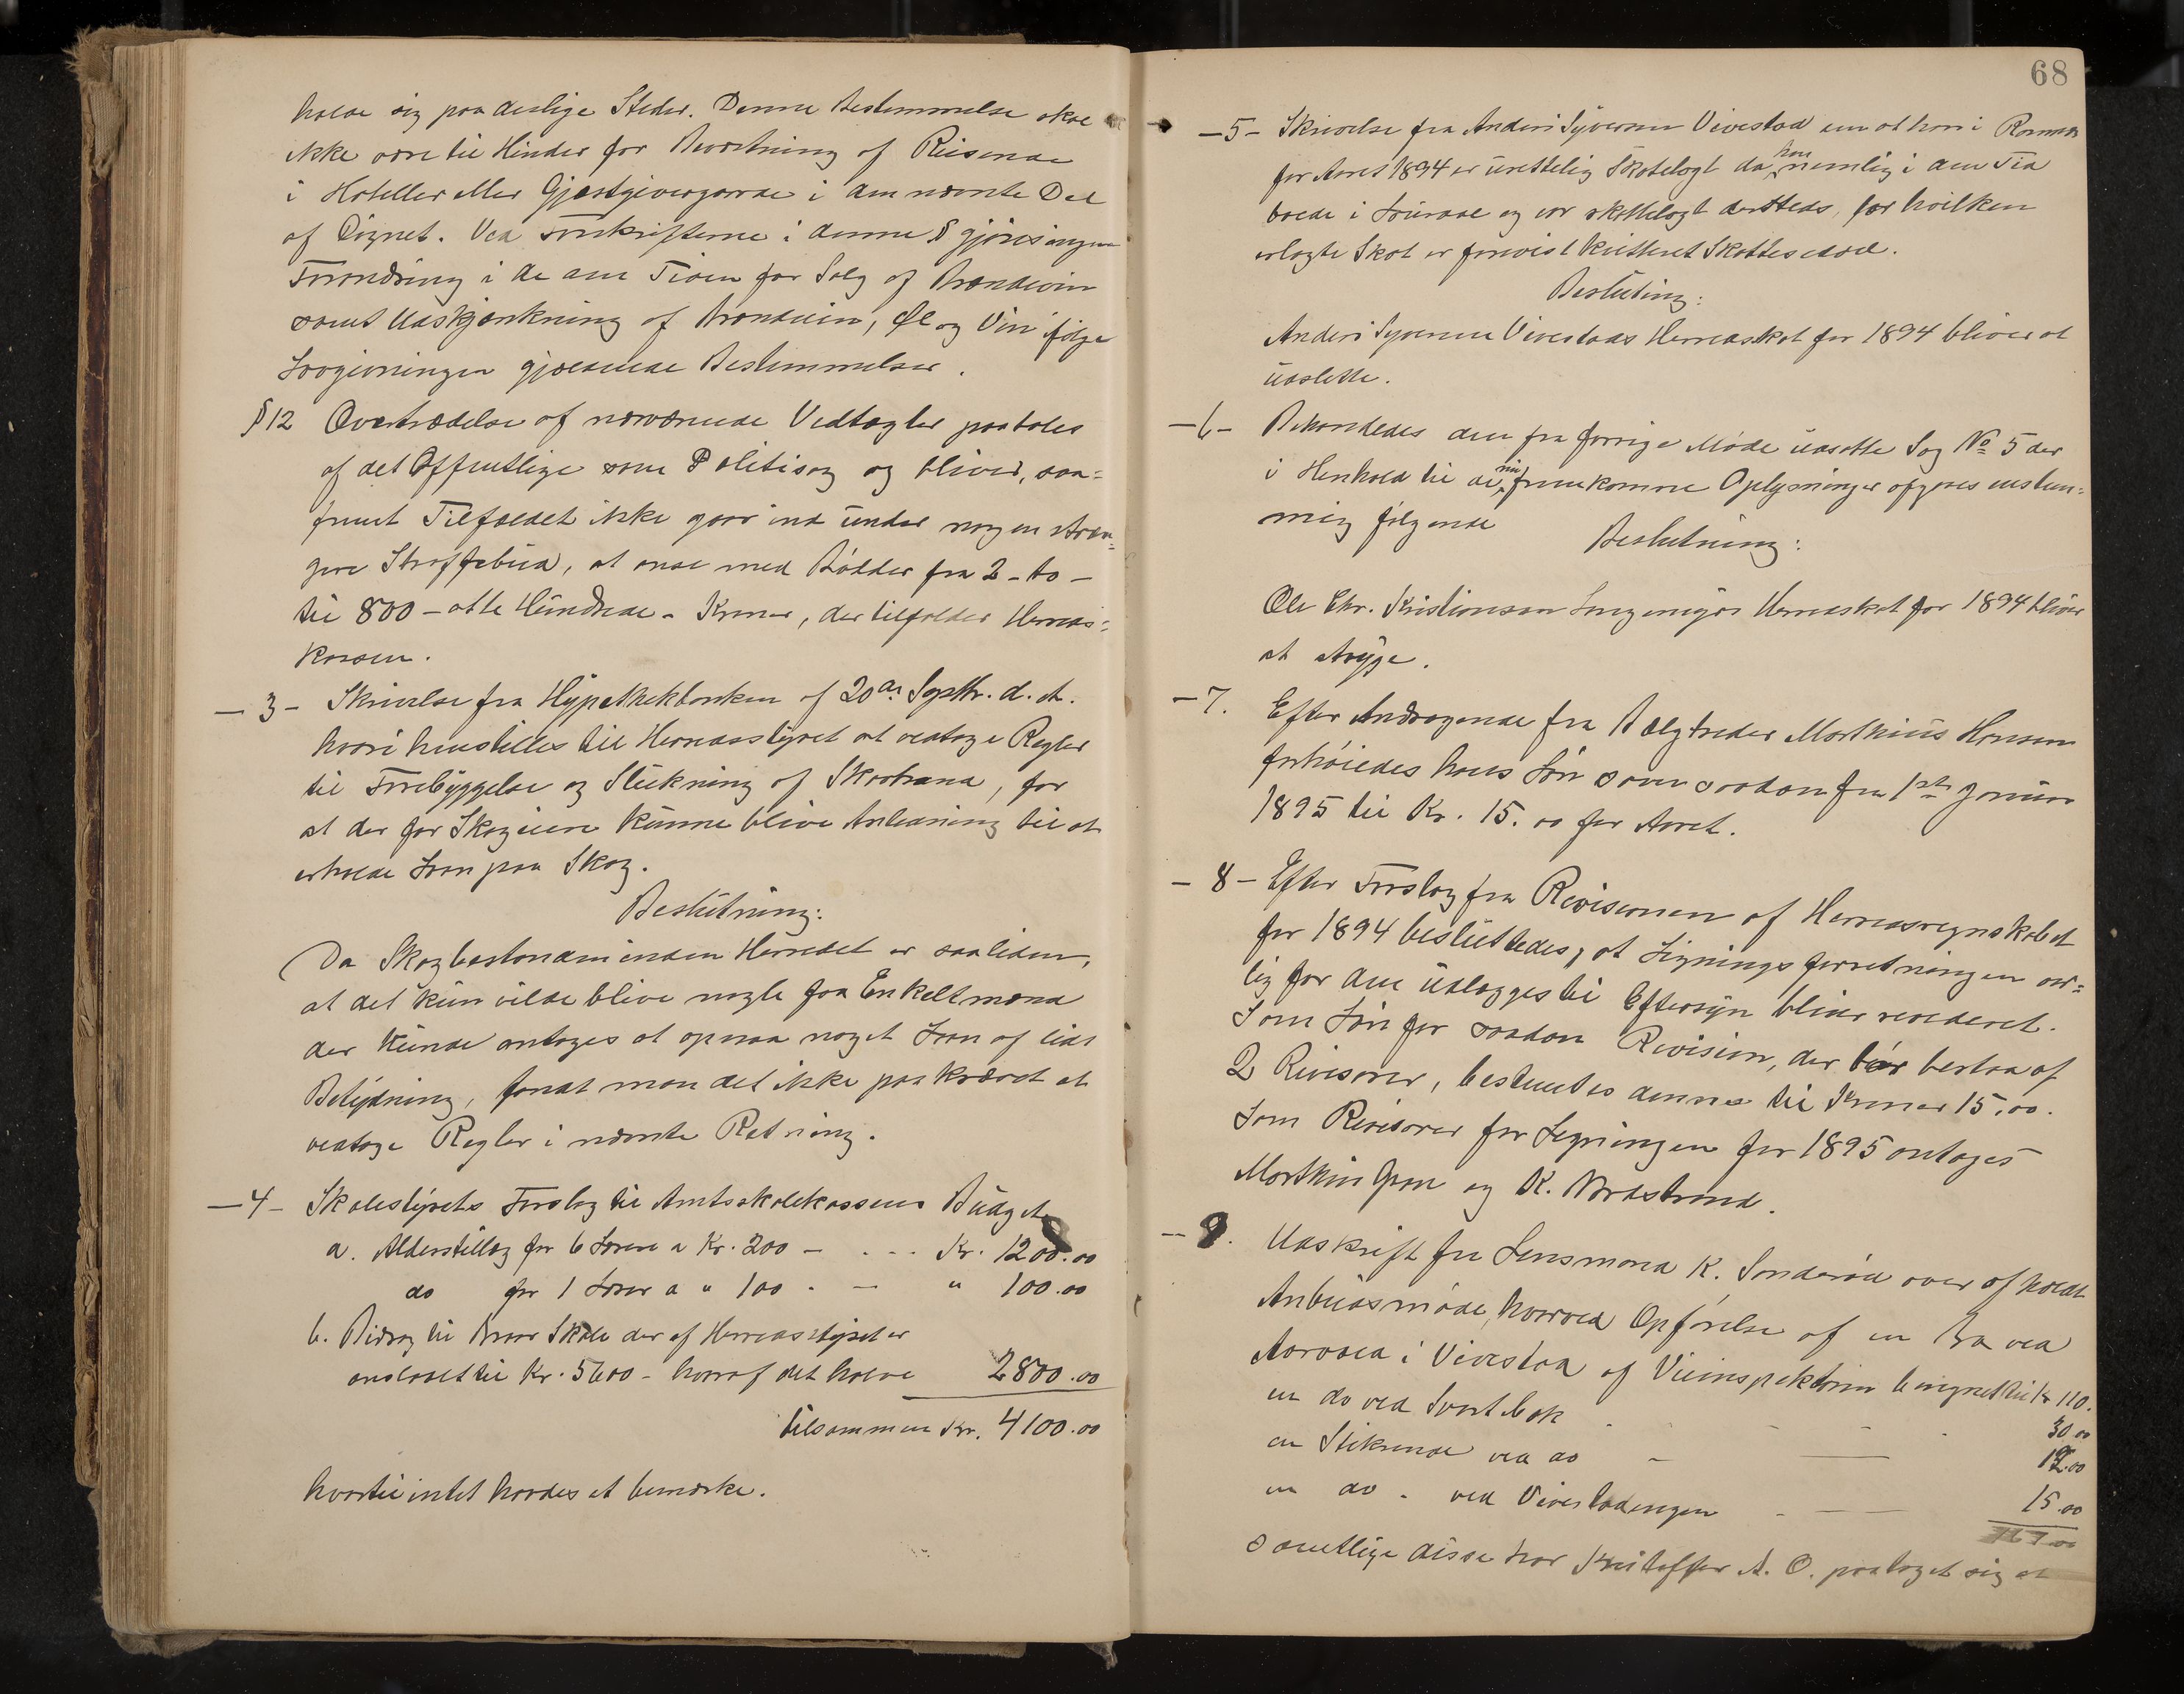 holde sig paa deslige Steder. Denne Bestemmelse skal
ikke være til Hinder for Bevertning af Reisende
i Hoteller eller Gjæstgivergaarde i den nævnte Del
af Døgnet. Ved Forskrifterne i denne § gjøres ingen
Forandring i de om Tiden for Salg af Brændevin
samt Udskjænkning af Brændevin, Øl og Vin ifølge
Lovgivningen gjældende Bestemmelser.
§12 Overtrædelse af nærværende Vedtægter paatales
af det Offentlige som Politisag og bliver, saa=
fremt Tilfældet ikke gaar ind under nogen stren=
gere Straffebud, at anse med Bødder fra 2 - to -
til 800 - otte Hundrede - Kroner, der tilfalder Herreds=
kassen.
- 3 - Skrivelse fra Hypothekbanken af 20de Septbr. d. A.
hvori henstilles til Herredsstyret at vedtage Regler
til Forebyggelse og Slukning af Skovbrand, for
at der for Skogeiere kunne blive Anledning til at
erholde Laan paa Skog.
Beslutning:
Da Skogbestanden inden Herredet er saa liden,
at det kun vilde blive nogle faa Enkeltmænd
der kunde antages at opnaa noget Laan af lidt
Betydning, fandt man det ikke paakrævet at
vedtage Regler i nævnte Retning.
- 4 - Skolestyrets Forslag til Amtsskolekassens Budget
a. Alderstillæg for 6 Lærere a Kr. 200 - . - - Kr. 1200.00
do for 1 Lærer a " 100 - - " 100.00
b. Bidrag til Skole der af Herredsstyret er
anslaaet til Kr. 5600 - hvoraf det halve 2800.00
tilsammen Kr. 4100.00
hvortil intet havdes at bemærke.
68
- 5 - Skrivelse fra Anders Syversen Vivestad om at han i Ramnæs
for Aaret 1894 er urettelig Skatelagt da han nemlig i den Tid
boede i Laurdal og var skattelagt dersteds, for hvilken
erlagte Skat er forevist kvitteret Skatteseddel.
Beslutning:
Anders Syversen Vivestads Herredsskat for 1894 bliver at
udslette.
- 6 - Behandledes den fra forrige Møde udsatte Sag No 5 der
i Henhold til de nu fremkomne Oplysninger afgjøres enstem=
mig følgende
Beslutning:
Ole Chr. Kristiansen Herredsskat for 1894 bliver
at stryge.
- 7. Efter Andragende fra Bælgtreder Marthinus Hansen
forhøiedes hans Løn som saadan fra 1ste Januar
1895 til Kr. 15.00 for Aaret.
- 8 - Efter Forslag fra Revisionen af Herredsregnskabet
for 1894 besluttedes, at Ligningsforretningen aar=
lig før den udlægges til Eftersyn bliver revideret.
Som Løn for saadan Revision, der bør bestaa af
2 Revisorer, bestemtes dennes til Kroner 15.00.
Som Revisorer for Ligningen for 1895 antages
Marthin Gran og K. Nordstrand.
- 9. Udskrift fra Lensmand K. Sonderød over afholdt
Anbudsmøde, hvorved Opførelse af en Bro ved
i Vivestad af Veiinspektøren beregnet til Kr 110.
en do ved Svartebæk - - - 30.00
en Stikrende ved do - — 12.00
en do - ved Vivestadengen - — 15.00
167.00
samtlige disse har Kristoffer A. O. paataget sig at